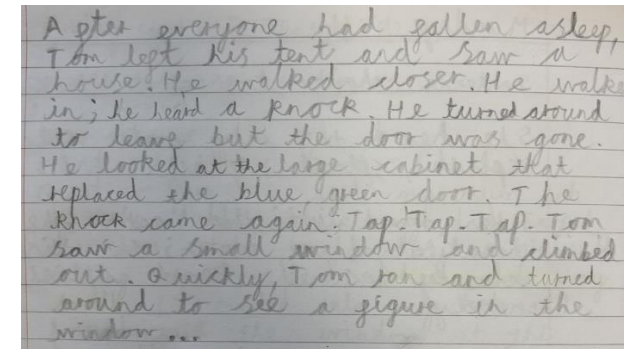 After everyone had fallen asleep,
Tom left his tent and saw a
house. He walked closer. He walk
in; he heard a knock. He turned around
to leave but the door was gone.
He looked at the large cabinet that
replaced the blue, green door. The
knock came again: Tap. Tap. Tap. Tom
saw a small window and climbed
out. Quickly, Tom ran and turned
around to see a figure in the
window...